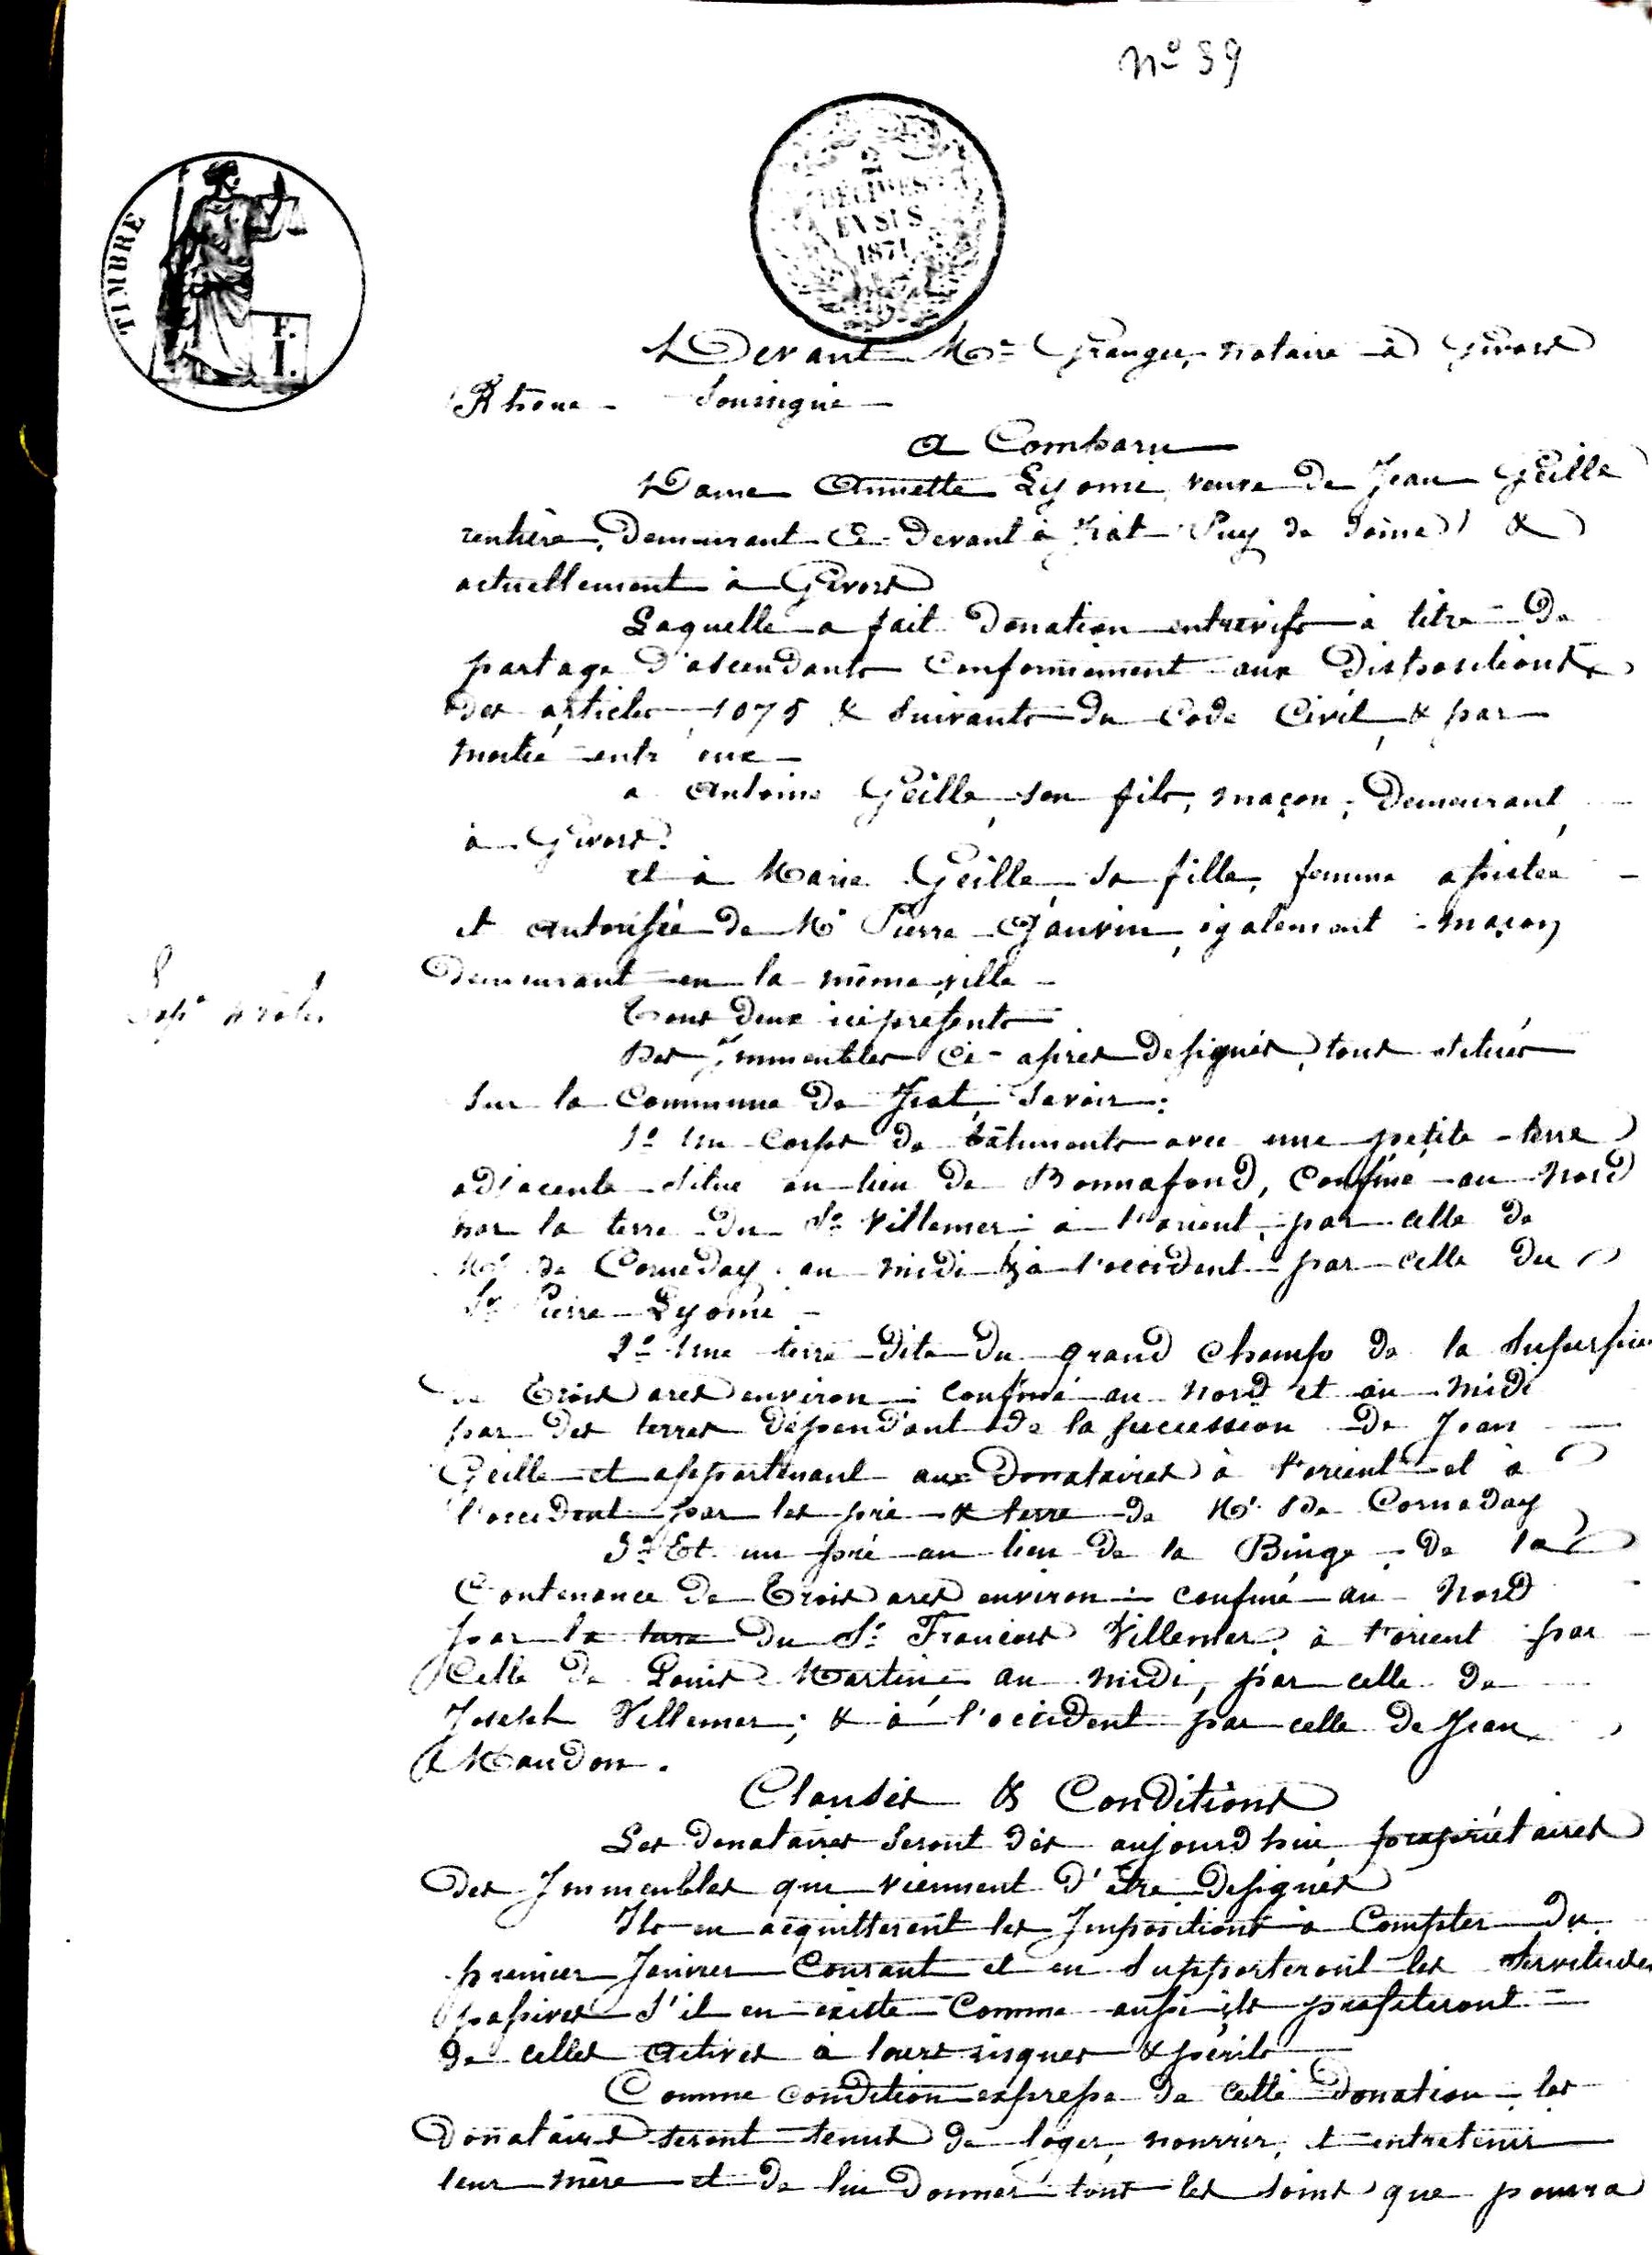 nº 39
TIMBRE
F.
I.
2
DÉCIMES
EN SUS
1871
Devant Mᵉ Granger, notaire à Givors
Rhône - Soussigné -
a Comparu
Dame Annette Lyomé veuve de Jean Geille
rentière, demeurant Ci-devant à Prat Puy de dôme) &
actuellement à Givors
Laquelle a fait Donation entrevifs à titre de
partage d'ascendants Conformément aux Dispositions
des articles 1075 & suivants du Code Civil & par
moitié entr eux -
a Antoine Geille son fils, maçon, demeurant
à Givors.
et à Marie Geille sa fille, femme assistée
et autorisée de Mʳ Pierre Gauvin également maçon
demeurant en la même ville -
Tous deux ici présents
Des Immeubles Ci-après désignés, tous situés
sur la Commune de Prat, Savoir :
1º Un Corps de bâtiments avec une petite terre
adjacente situé au lieu de Bonnafond, Confiné au nord
par la terre du Sʳ Villemer, à l'orient, par celle de
Mʳ de Corneday au midi & à l'occident par celle du
Sʳ Pierre Lyomé -
2º Une terre dite du grand Champ de la Superficie
de Trois ares environ confiné au nord et au midi
par des terres dépendant de la succession de Jean
Geille et appartenant aux Donataires à l'orient et à
l'occident par les pré & terre de Mʳ de Corneday
3º Et un pré au lieu de la Binge de la
Contenance de Trois ares environ confiné au Nord
par la terre du Sʳ François Villemer, à l'orient par
Celle de Louis Martin au midi, par celle de
Joseph Villemer ; & à l'occident par celle de Jean
Maudon.
Clauses & Conditions
Les donataires seront dès aujourd hui propriétaires
des Immeubles qui viennent d'être désignés
Ils en acquitteront les Impositions à Compter du
premier Janvier Courant et en supporteront les Servitudes
passives s'il en existe Comme aussi ils profiteront
de celles actives à leurs risques & périls
Comme condition expresse de cette donation les
donataires seront tenus de loger, nourrir, et entretenir
leur mère et de lui donner tous les soins que pourra